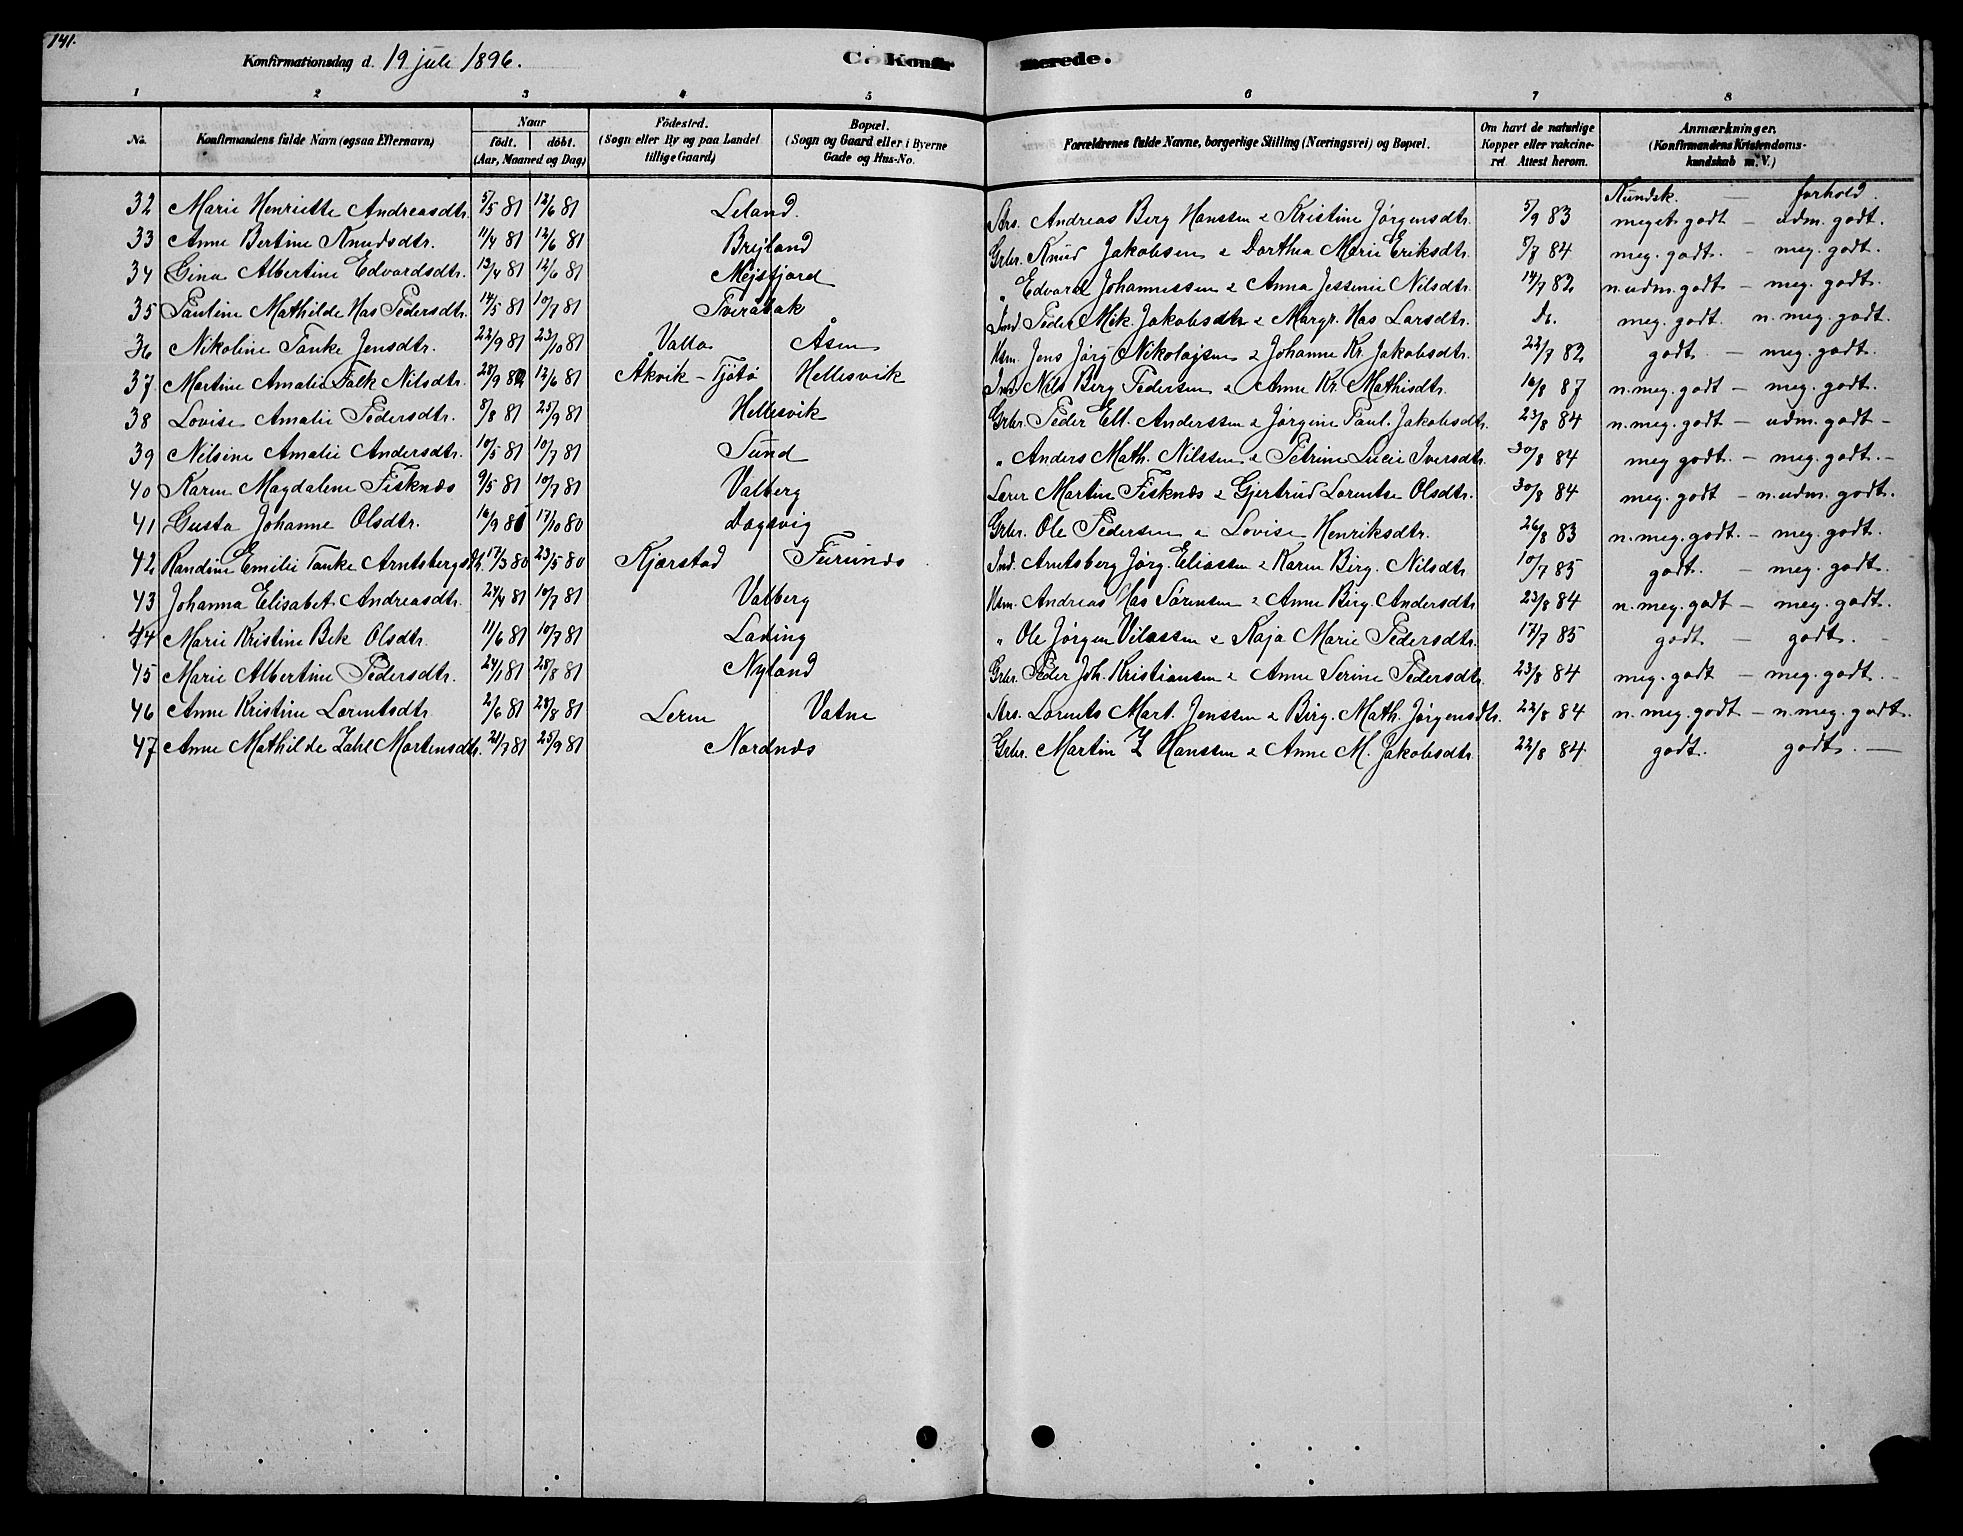 141.
Konfirmationsdag d. 19 juli 1896.
C. Konfirmerede.
1 2 3 4 5 6 7 8
No.
Konfirmandens fulde Navn (ogsaa Efternavn)
Naar
født. døbt.
(Aar, Maaned og Dag)
Fødested.
(Sogn eller By og paa Landet
tillige Gaard)
Bopæl.
(Sogn og Gaard eller i Byerne
Gade og Hus-No.
Forældrenes fulde Navne, borgerlige Stilling (Næringsvei) og Bopæl.
Om havt de naturlige
Kopper eller vakcine-
ret. Attest herom.
Anmærkninger.
(Konfirmandens Kristendoms-
kundskab m. V.)
Kundsk. — forhold.
32 Marie Henriette Andreasdtr. 5/5 81 12/6 81 Leland. Strs. Andreas Berg Hanssen & Kristine Jørgensdtr. 5/9 83 meget godt - udm. godt.
33 Anne Bertine Knudsdtr. 11/4 81 12/6 81 Brejland Grbr. Knud Jakobsen & Dorthea Marie Eriksdtr. 5/7 84 meg. godt. - meg. godt.
34 Gina Albertine Edvardsdtr. 13/4 81 12/6 81 Mejsfjord " Edvard Johannessen & Anna Jessine Nilsdtr. 14/7 82 n. udm. godt - meg. godt.
35 Pauline Mathilde Has Pedersdtr. 14/5 81 10/7 81 Tveråbak Ind Peder Mik. Jakobsdtr & Margr. Has Larsdtr. do. meg. godt. n. meg. godt.
36 Nikoline Tanke Jensdtr. 22/9 81 23/10 81 Valla Åsen Hsm. Jens Jørg Nikolajsen & Johanne Kr. Jakobsdtr. 22/7 82 godt - meg. godt.
37 Martine Amalie Falk Nilsdtr. 28/9 82 12/6 81 Åkvik - Tjøtø Hellesvik Ind. Nils Berg Pedersen & Anne Kr. Mathisdtr. 16/8 87 n. meg. godt - meg. godt.
38 Lovise Amalie Pedersdtr. 8/8 81 25/9 81 Hellesvik Grbr. Peder Ell. Anderssen & Jørgine Paul. Jakobsdtr. 23/8 84 n. meg. godt - udm. godt -
39 Nilsine Amalie Andersdtr. 10/5 81 10/7 81 Sund " Anders Math. Nilssen & Petrine Lucie Iversdtr. 30/8 84 meg godt. - meg. godt. -
40 Karen Magdalene Fisknes 9/5 81 10/7 81 Valberg Lærer Martin Fisknes & Gjertrud Lorentse Olsdtr. 30/8 84 meg. godt - n. udm. godt.
41 Gusta Johanne Olsdtr. 16/9 80 17/10 80 Dagsvig Grbr. Ole Pedersen & Lovise Henriksdtr. 26/8 83 n. meg. godt. - meg. godt.
42 Randine Emilie Tanke Arntsbergsdt. 17/3 80 23/5 80 Kjærstad Ind. Arntsberg Jørg. Eliassen & Karen Birg. Nilsdtr 10/7 85 godt. - meg. godt.
43 Johanna Elisabet Andreasdtr. 24/4 81 10/7 81 Valberg Hsm. Andreas Has Sørensen & Anne Birg. Andersdtr 23/8 84 n. meg. godt - meg. godt.
44 Marie Kristine Bek Olsdtr. 11/6 81 10/7 81 Lading " Ole Jørgen Vilassen & Kaja Marie Pedersdtr. 17/7 85 godt - godt. -
45 Marie Albertine Pedersdtr. 24/1 81 28/8 81 Nyland Grbr. Peder Joh. Kristiansen & Anne Serine Pedersdtr. 23/8 84 meg. godt - meg. godt. -
46 Anne Kristine Lorentsdtr. 2/6 81 28/8 81 Leren Vatne Strs. Lorents Mart. Jenssen & Birg. Math. Jørgensdtr. 22/8 84 n. meg. godt - n. meg. godt.
47 Anne Mathilde Zahl Mortensdtr. 21/7 81 25/9 81 Nordnes Grbr. Martin Z Hanssen & Anne M. Jakobsdtr. 22/8 84 godt. godt. -